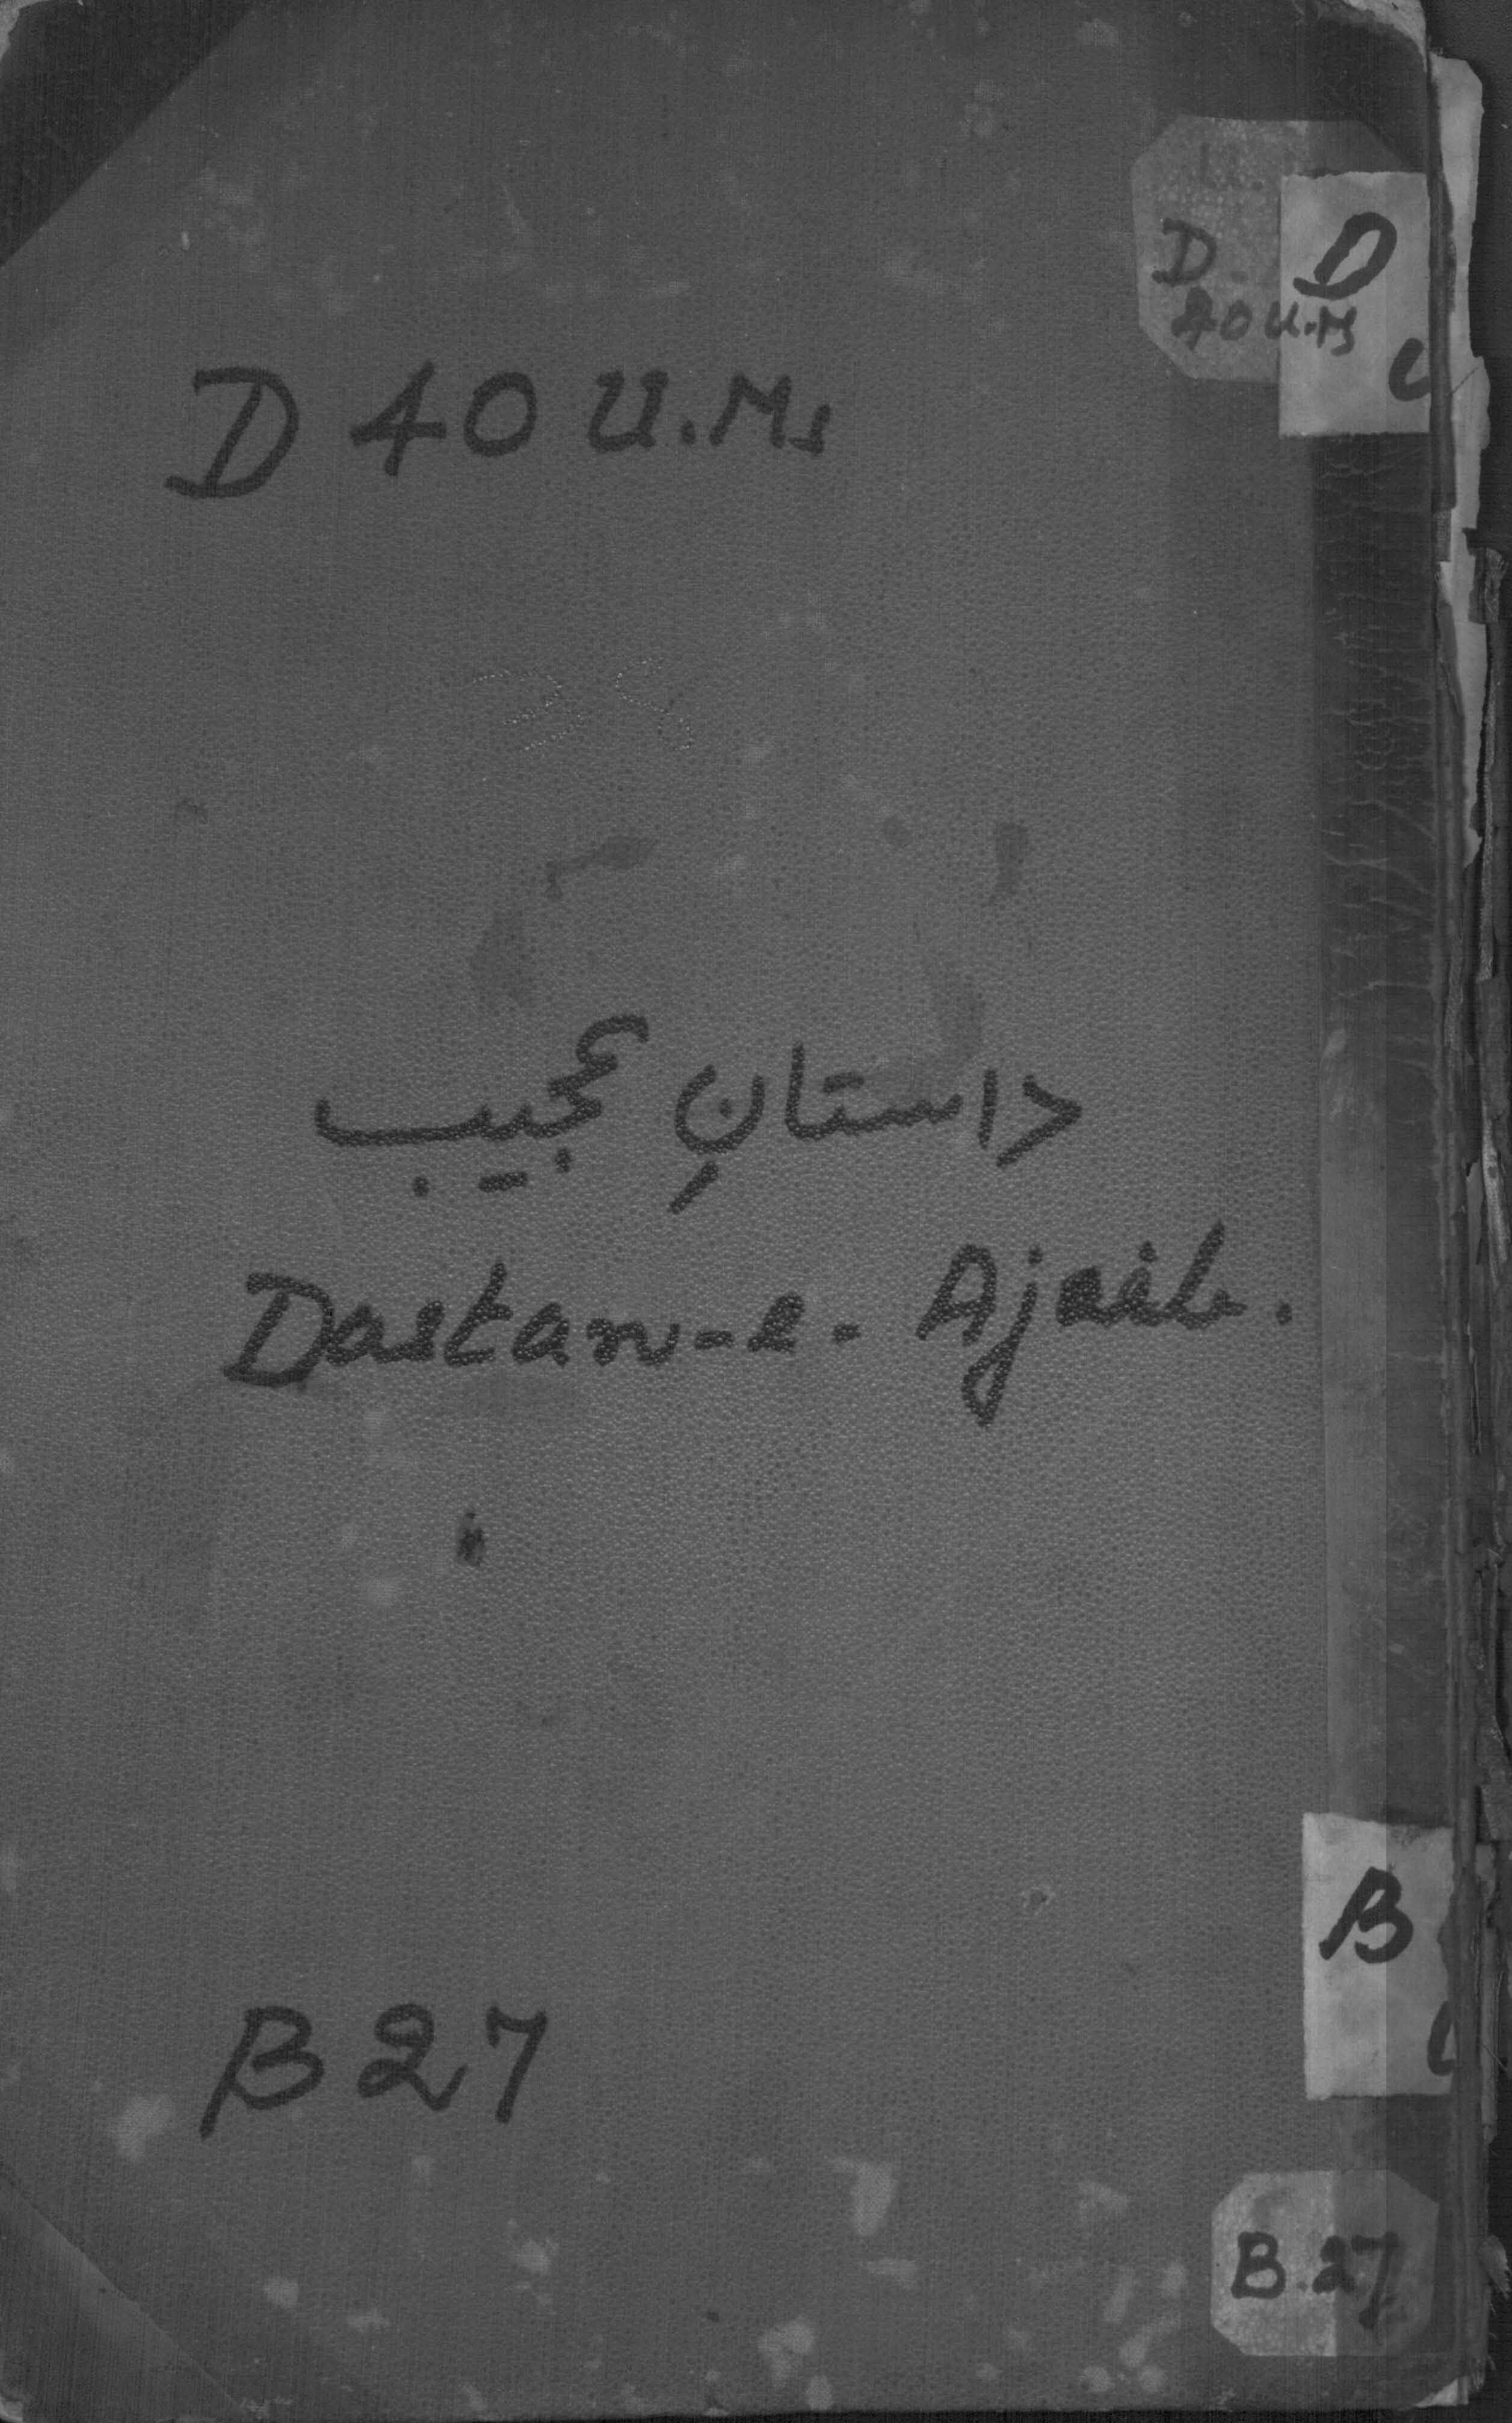 D
40 U.Ms
D
D 40 U.Ms
داستانِ عجیب
Dastan-e-Ajaib.
B
B 27
B.27